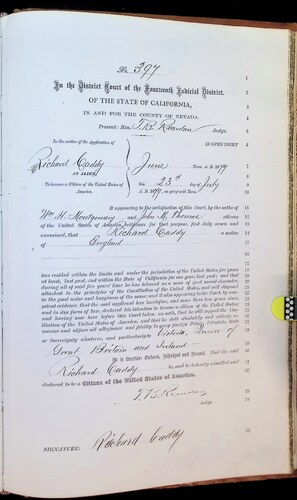 No. 397
In the District Court of the Fourteenth Judicial District,
OF THE STATE OF CALIFORNIA,
IN AND FOR THE COUNTY OF NEVADA.
Present: Hon. T. B. Reardan Judge.
In the matter of the Application of
Richard Caddy
AN ALIEN,
To become a Citizen of the United States of America.
IN OPEN COURT
June Term, A. D. 1879
this 23rd day of July
A. D. 1879, an part of said Term.
It appearing to the satisfaction of this Court, by the oaths of
Wm H. Montgomery and John M. Thomas citizens
of the United States of America, witnesses for that purpose, first duly sworn and
examined, that Richard Caddy a native
of England
has resided within the limits and under the jurisdiction of the United States five years
at least, last past, and within the State of California for one year, last past; and that
during all of said five years' time he has behaved as a man of good moral character,
attached to the principles of the Constitution of the United States, and well disposed
to the good order and happiness of the same; and it also appearing to the Court, by com-
petent evidence, that the said applicant has heretofore, and more than two years since,
and in due form of law, declared his intention to become a citizen of the United States;
and having now here before this Court taken an oath, that he will support the Con-
stitution of the United States of America, and that he doth absolutely and entirely re-
nounce and abjure all allegiance and fidelity to every foreign Prince, Potentate, State
or Sovereignty whatever, and particularly to Victoria, Queen of
Great Britain and Ireland
It is therefore Ordered, Adjudged and Decreed, That the said
Richard Caddy be, and he is hereby admitted and
declared to be a Citizen of the United States of America.
T. B. Reardan
Judge.
SIGNATURE: Richard Caddy